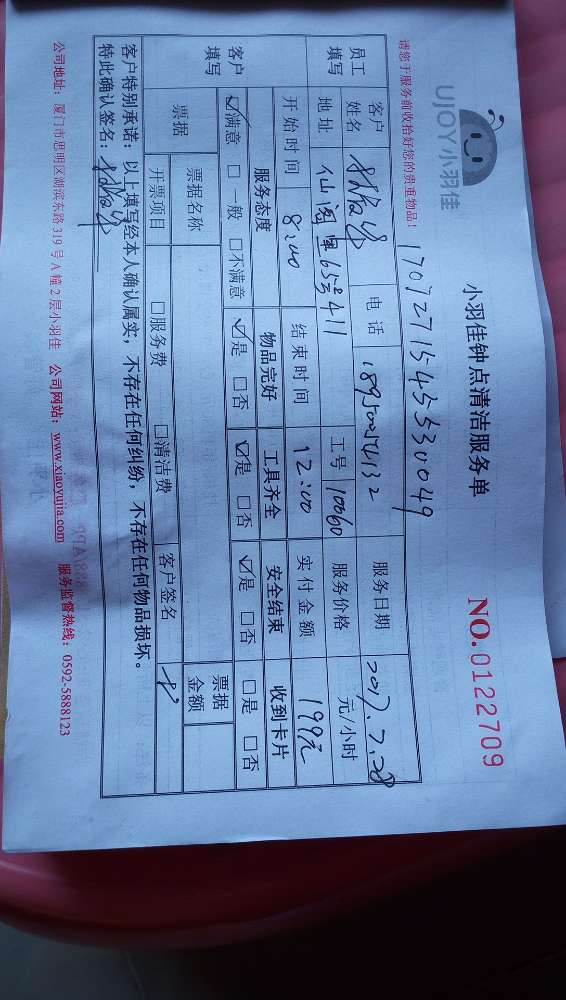 UJOY小羽佳
小羽佳钟点清洁服务单
NO.0122709
请您于服务前收拾好您的贵重物品!
1707271545530049
员工填写
客户姓名 电话 18950054132 服务日期 2017.7.28
地址 仙阁里65号411 工号 10060 服务价格 元/小时
开始时间 8:00 结束时间 12:00 实付金额 199元
客户填写
服务态度 物品完好 工具齐全 安全结束 收到卡片
☑满意 □一般 □不满意 ☑是 □否 ☑是 □否 ☑是 □否 □是 □否
票据
票据名称 票据金额
开票项目 □服务费 □清洁费 客户签名
客户特别承诺:以上填写经本人确认属实,不存在任何纠纷,不存在任何物品损坏。
特此确认签名:
公司地址:厦门市思明区湖滨东路319号A幢2层小羽佳 公司网站:www.xiaoyujia.com 服务监督热线:0592-5888123